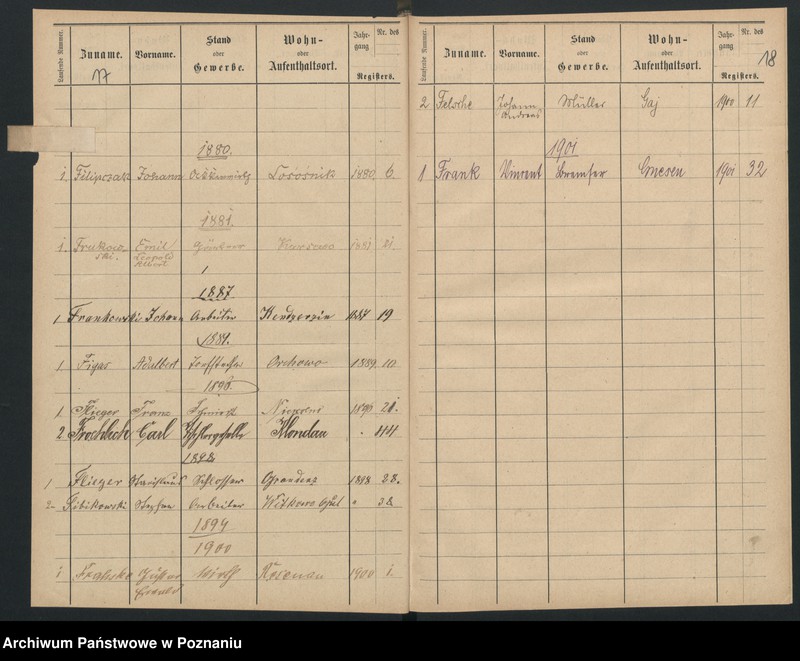 Laufende Nummer. Zuname. Vorname. Stand oder Gewerbe. Wohn- oder Aufenthaltsort. Jahrgang Nr. des Registers.
17
1880.
1. Filipczak Johann Lososnik 1880 6.
1881.
1. Frukowski. Emil Leopold Albert 1881 21.
1887.
1 Frankowski Johann Arbeiter 1887 19
1889.
1. Figas Adalbert Orchowo 1889 10.
1890.
1 Flieger Franz Schmiedt 1890 21.
2. Carl Mondau " 44
1898
1 Flieger Stanislaus Schlosser Graudenz 1898 28.
2 Stephan Arbeiter Witkowo " 32
1899
1900
1 Gustav Wirth 1900 1.
Laufende Nummer. Zuname. Vorname. Stand oder Gewerbe. Wohn- oder Aufenthaltsort. Jahrgang Nr. des Registers.
18
2 Felsche Johann Andreas Müller Gaj 1900 11
1901
1 Frank Vincent Bremser Gnesen 1901 32
Archiwum Państwowe w Poznaniu